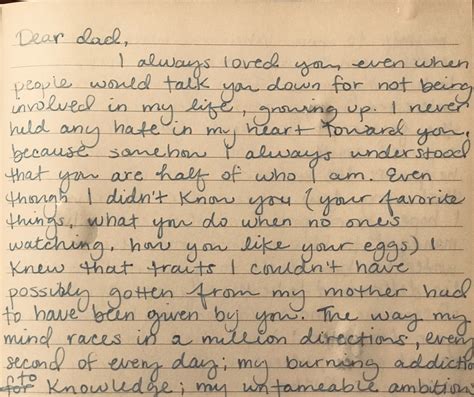 Dear dad,
I always loved you, even when
people would talk you down for not being
involved in my life, growing up. I never
held any hate in my heart toward you,
because somehow I always understood
that you are half of who I am. Even
though I didn't know you (your favorite
things, what you do when no one's
watching, how you like your eggs) I
knew that traits I couldn't have
possibly gotten from my mother had
to have been given by you. The way my
mind races in a million directions, every
second of every day; my burning addictio
to knowledge; my untameable ambitions